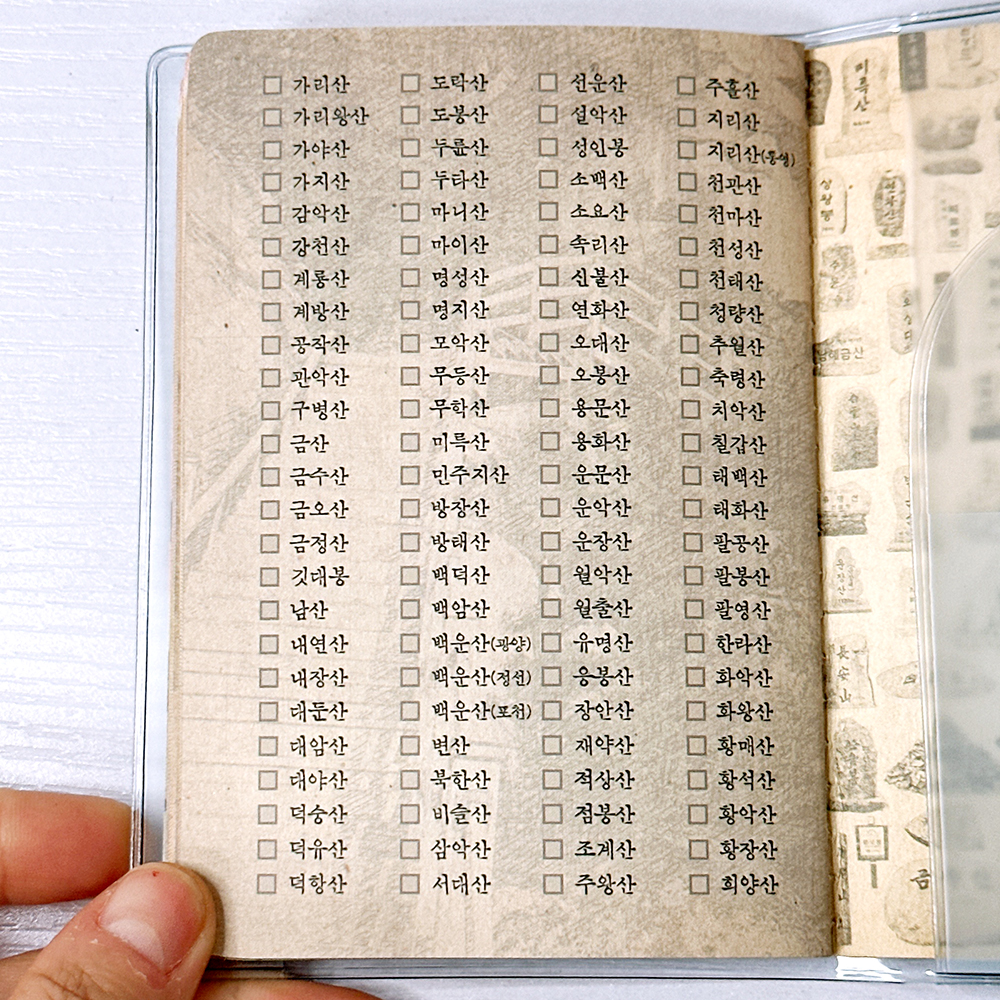 가리산
가리왕산
가야산
가지산
감악산
강천산
계룡산
계방산
공작산
관악산
구병산
금산
금수산
금오산
금정산
깃대봉
남산
내연산
내장산
대둔산
대암산
대야산
덕숭산
덕유산
덕항산
도락산
도봉산
두륜산
두타산
마니산
마이산
명성산
명지산
모악산
무등산
무학산
미륵산
민주지산
방장산
방태산
백덕산
백암산
백운산(광양)
백운산(정선)
백운산(포천)
변산
북한산
비슬산
삼악산
서대산
선운산
설악산
성인봉
소백산
소요산
속리산
신불산
연화산
오대산
오봉산
용문산
용화산
운문산
운악산
운장산
월악산
월출산
유명산
응봉산
장안산
재약산
적상산
점봉산
조계산
주왕산
주흘산
지리산
지리산(통영)
천관산
천마산
천성산
천태산
청량산
추월산
축령산
치악산
칠갑산
태백산
태화산
팔공산
팔봉산
팔영산
한라산
화악산
화왕산
황매산
황석산
황악산
황장산
희양산
미륵산
長安山